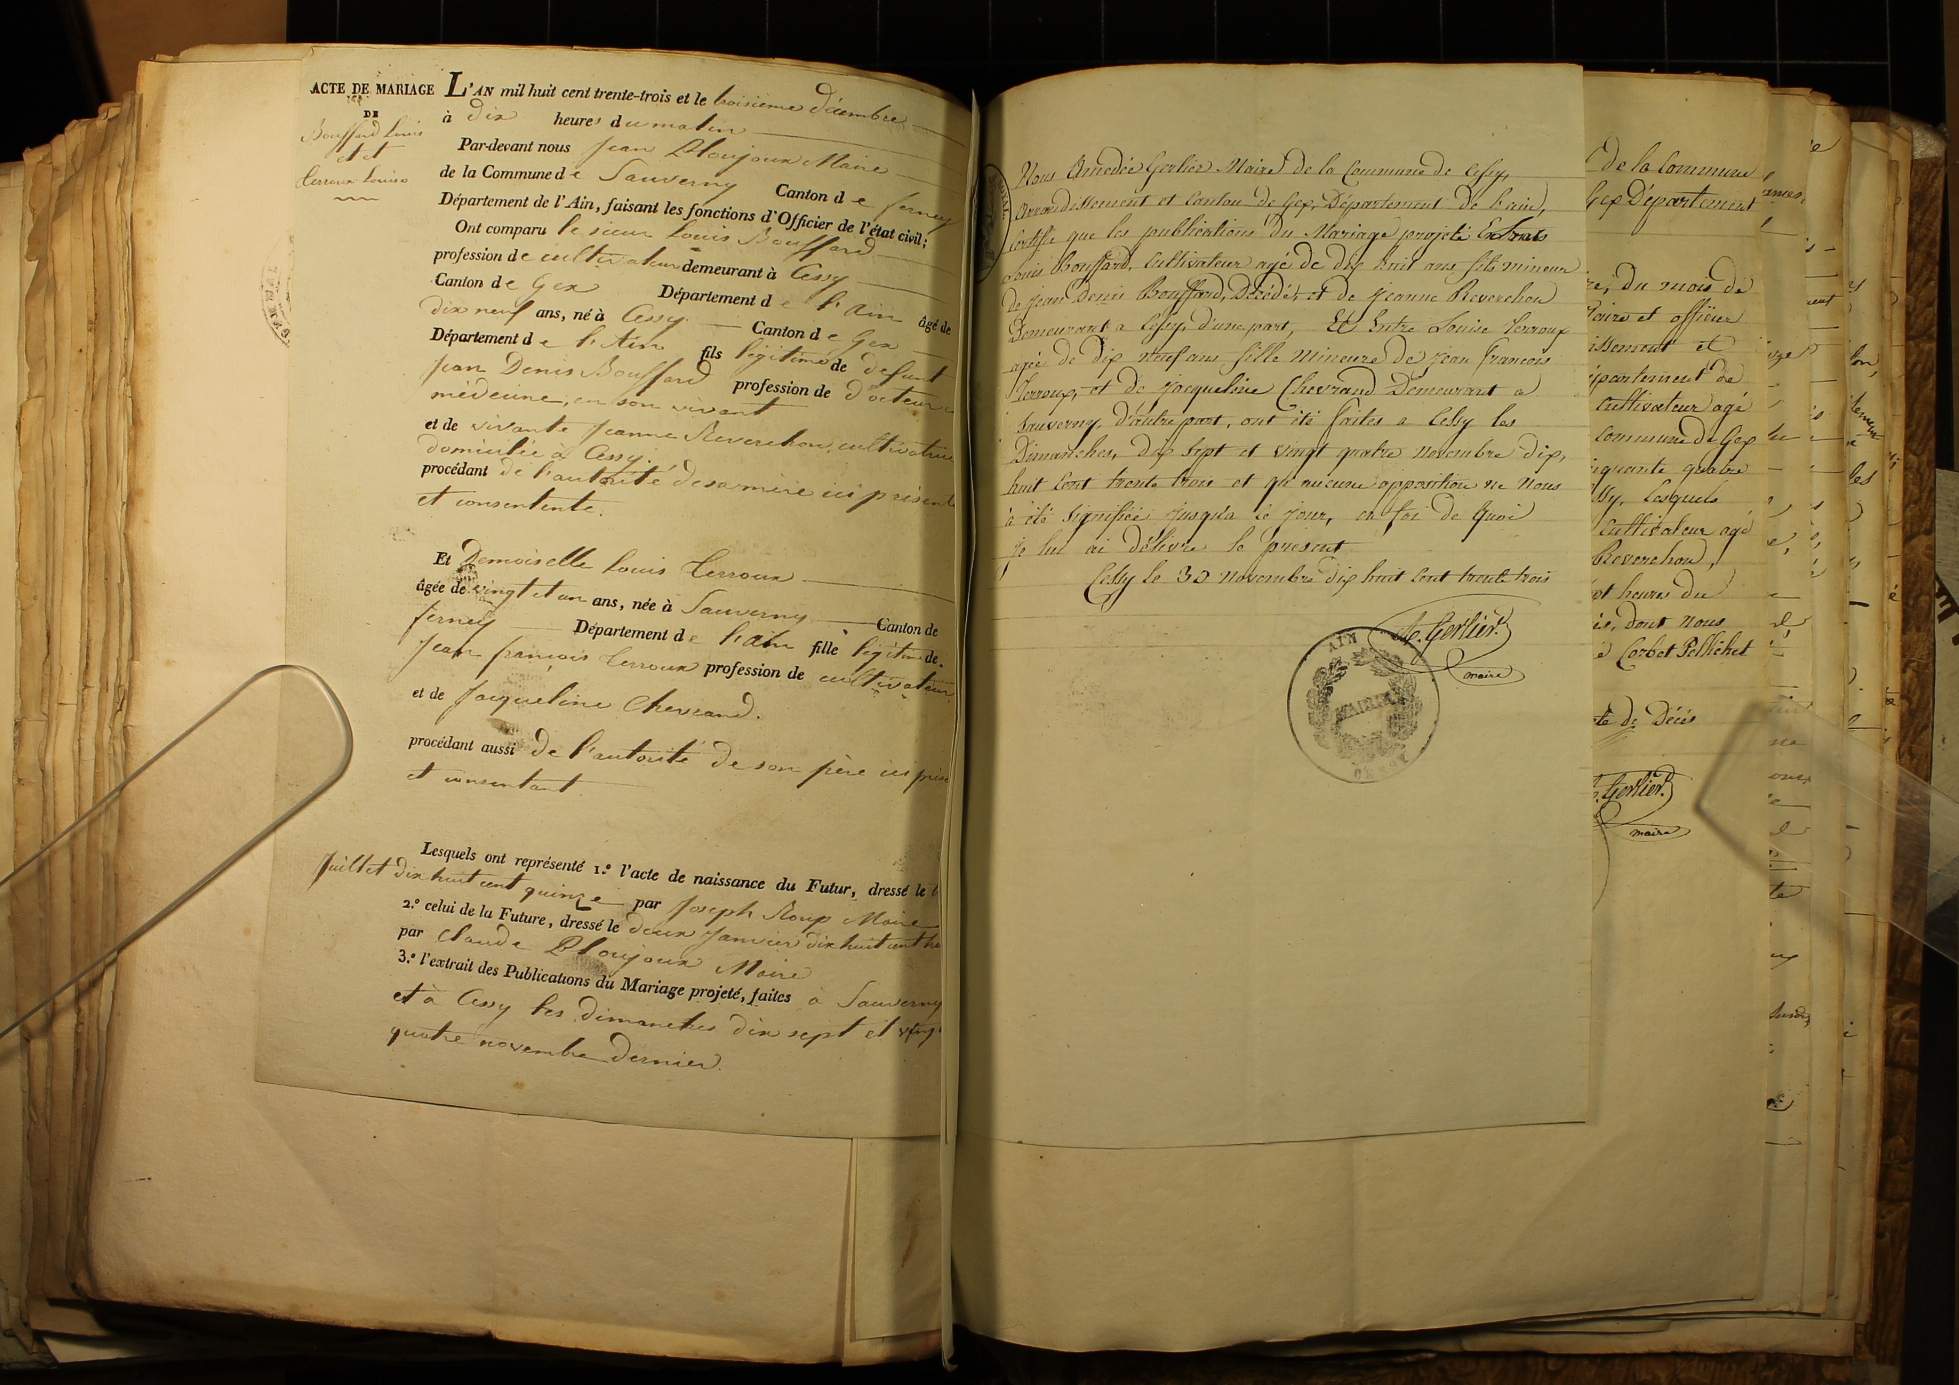 ACTE DE MARIAGE
DE
Bouffard Louis
et
Terroux Louise
L'AN mil huit cent trente-trois et le troisieme décembre
à dix heures du matin
Par-devant nous Jean Ploujoux Maire
de la Commune de Sauverny Canton de ferney
Département de l'Ain, faisant les fonctions d'Officier de l'état civil;
Ont comparu le sieur Louis Bouffard
profession de cultivateur demeurant à Cessy
Canton de Gex Département de l'Ain âgé de
dix neuf ans, né à Cessy Canton de Gex
Département de l'Ain fils légitime de defunt
Jean Denis Bouffard profession de docteur
médecine, en son vivant
et de vivante Jeanne Reverchon, cultivatrice
domiciliée à Cessy.
procédant de l'autorité de sa mère ici présente
et consentente.
Et Demoiselle Louis Terroux
âgée de vingt et un ans, née à Sauverny Canton de
ferney Département de l'ain fille légitime de
Jean françois Terroux profession de cultivateur
et de Jacqueline Chevrand.
procédant aussi de l'autorité de son père ici
et consentant
Lesquels ont représenté 1.º l'acte de naissance du Futur, dressé le
Juillet dix huit cent quinze par Joseph Roup Maire
2.º celui de la Future, dressé le deux Janvier dix huit cent
par Claude Ploujoux Maire
3.º l'extrait des Publications du Mariage projeté, faites à Sauverny
et à Cessy les dimanches dix sept et vingt
quatre novembre dernier.
Nous Amedée Gerlier Maire de la Commune de Cessy,
Arrondissement et Canton de Gex, Département de l'ain,
Certifie que les publications du Mariage projeté Entre
Louis Bouffard, Cultivateur agé de dix huit ans, fils mineur
de Jean Denis Bouffard, Décédé, et de Jeanne Reverchon
Demeurant a Cessy, d'une part, Et Entre Louise Terroux
agée de dix neuf ans fille mineure de Jean francois
Terroux, et de Jacqueline Chevrand Demeurant a
Sauverny, d'autre part, ont été faites a Cessy les
Dimanches, dix sept et vingt quatre novembre dix,
huit Cent trente trois et qu'aucune opposition ne nous
à été Signifiée Jusqu'a ce jour, en foi de quoi
je lui ai délivré le present
Cessy le 30 novembre dix huit Cent trente trois
A. Gerlier
maire
AIN
MAIRIE
de la Commune
Gex Département
du mois de
Maire et officier
issement et
département de
Cultivateur agé
Commune de Gex
cinquante quatre
Cessy, Lesquels
Cultivateur agé
Reverchon,
heures du
dont nous
Corbet Pellichet
de Décès
Gerlier
maire